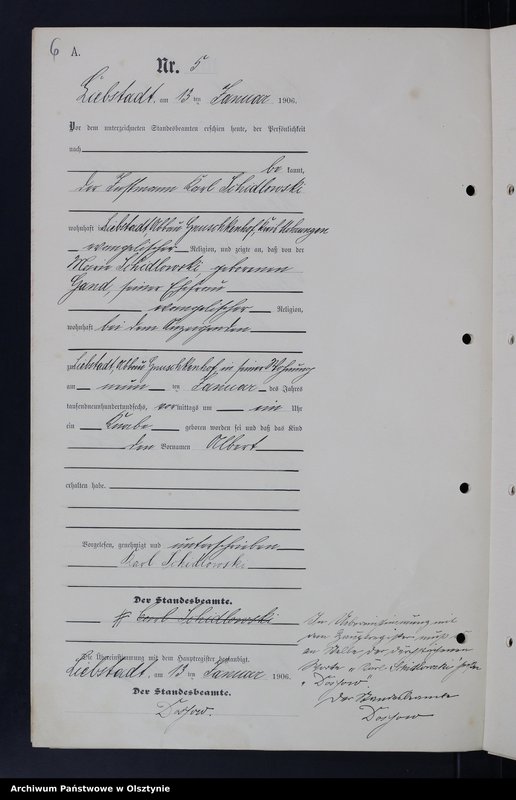 6 A.
Nr. 5
Liebstadt, am 13 ten Januar 1906.
Vor dem unterzeichneten Standesbeamten erschien heute, der Persönlichkeit
nach
be kannt,
der Karl Schidlowski
wohnhaft in Liebstadt, Abbau Kreis Mohrungen
evangelischer Religion, und zeigte an, daß von der
Marie Schidlowski geborenen
Gand, seiner Ehefrau
evangelischer Religion,
wohnhaft bei dem Anzeigenden
zu Liebstadt, Abbau in seiner Wohnung
am neun ten Januar des Jahres
tausendneunhundertundsechs, vormittags um ein Uhr
ein Knabe geboren worden sei und daß das Kind
den Vornamen Albert
erhalten habe.
Vorgelesen, genehmigt und unterschrieben
Karl Schidlowski
Der Standesbeamte.
Karl Schidlowski
Die Übereinstimmung mit dem Hauptregister beglaubigt.
Liebstadt, am 13 ten Januar 1906.
Der Standesbeamte.
In Uebereinstimmung mit
dem Hauptregister muß es
an Stelle der durchstrichenen
Worte „Karl Schidlowski" heißen
Der Standesbeamte
Archiwum Państwowe w Olsztynie